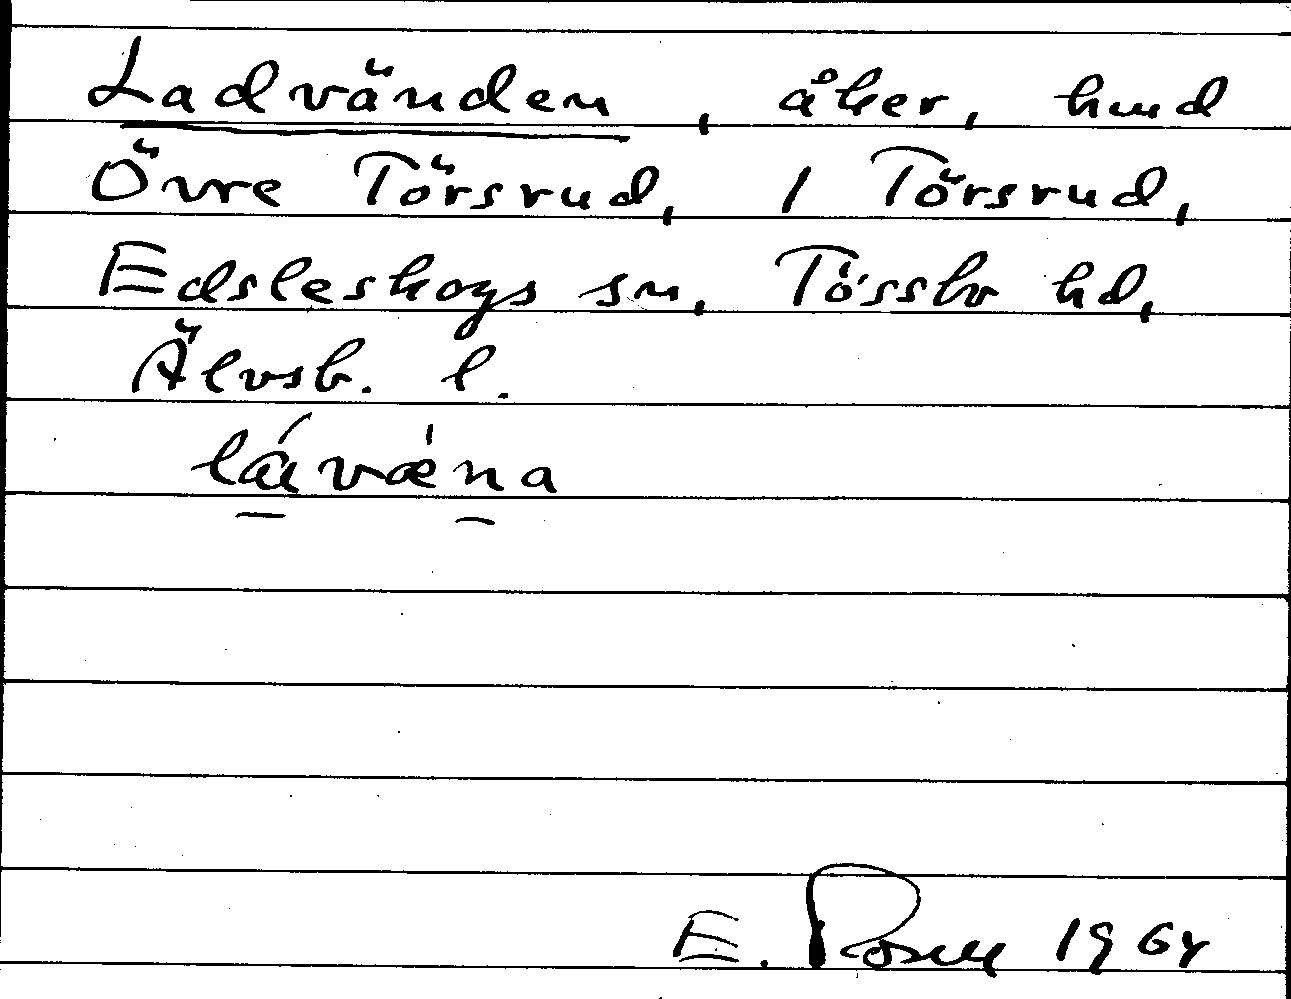 Ladvänden, åker, hmd
Övre Törsrud, 1 Törsrud,
Edsleskogs sn, Tössbo hd,
Älvsb. l.
lávæ̀na
E. 1964